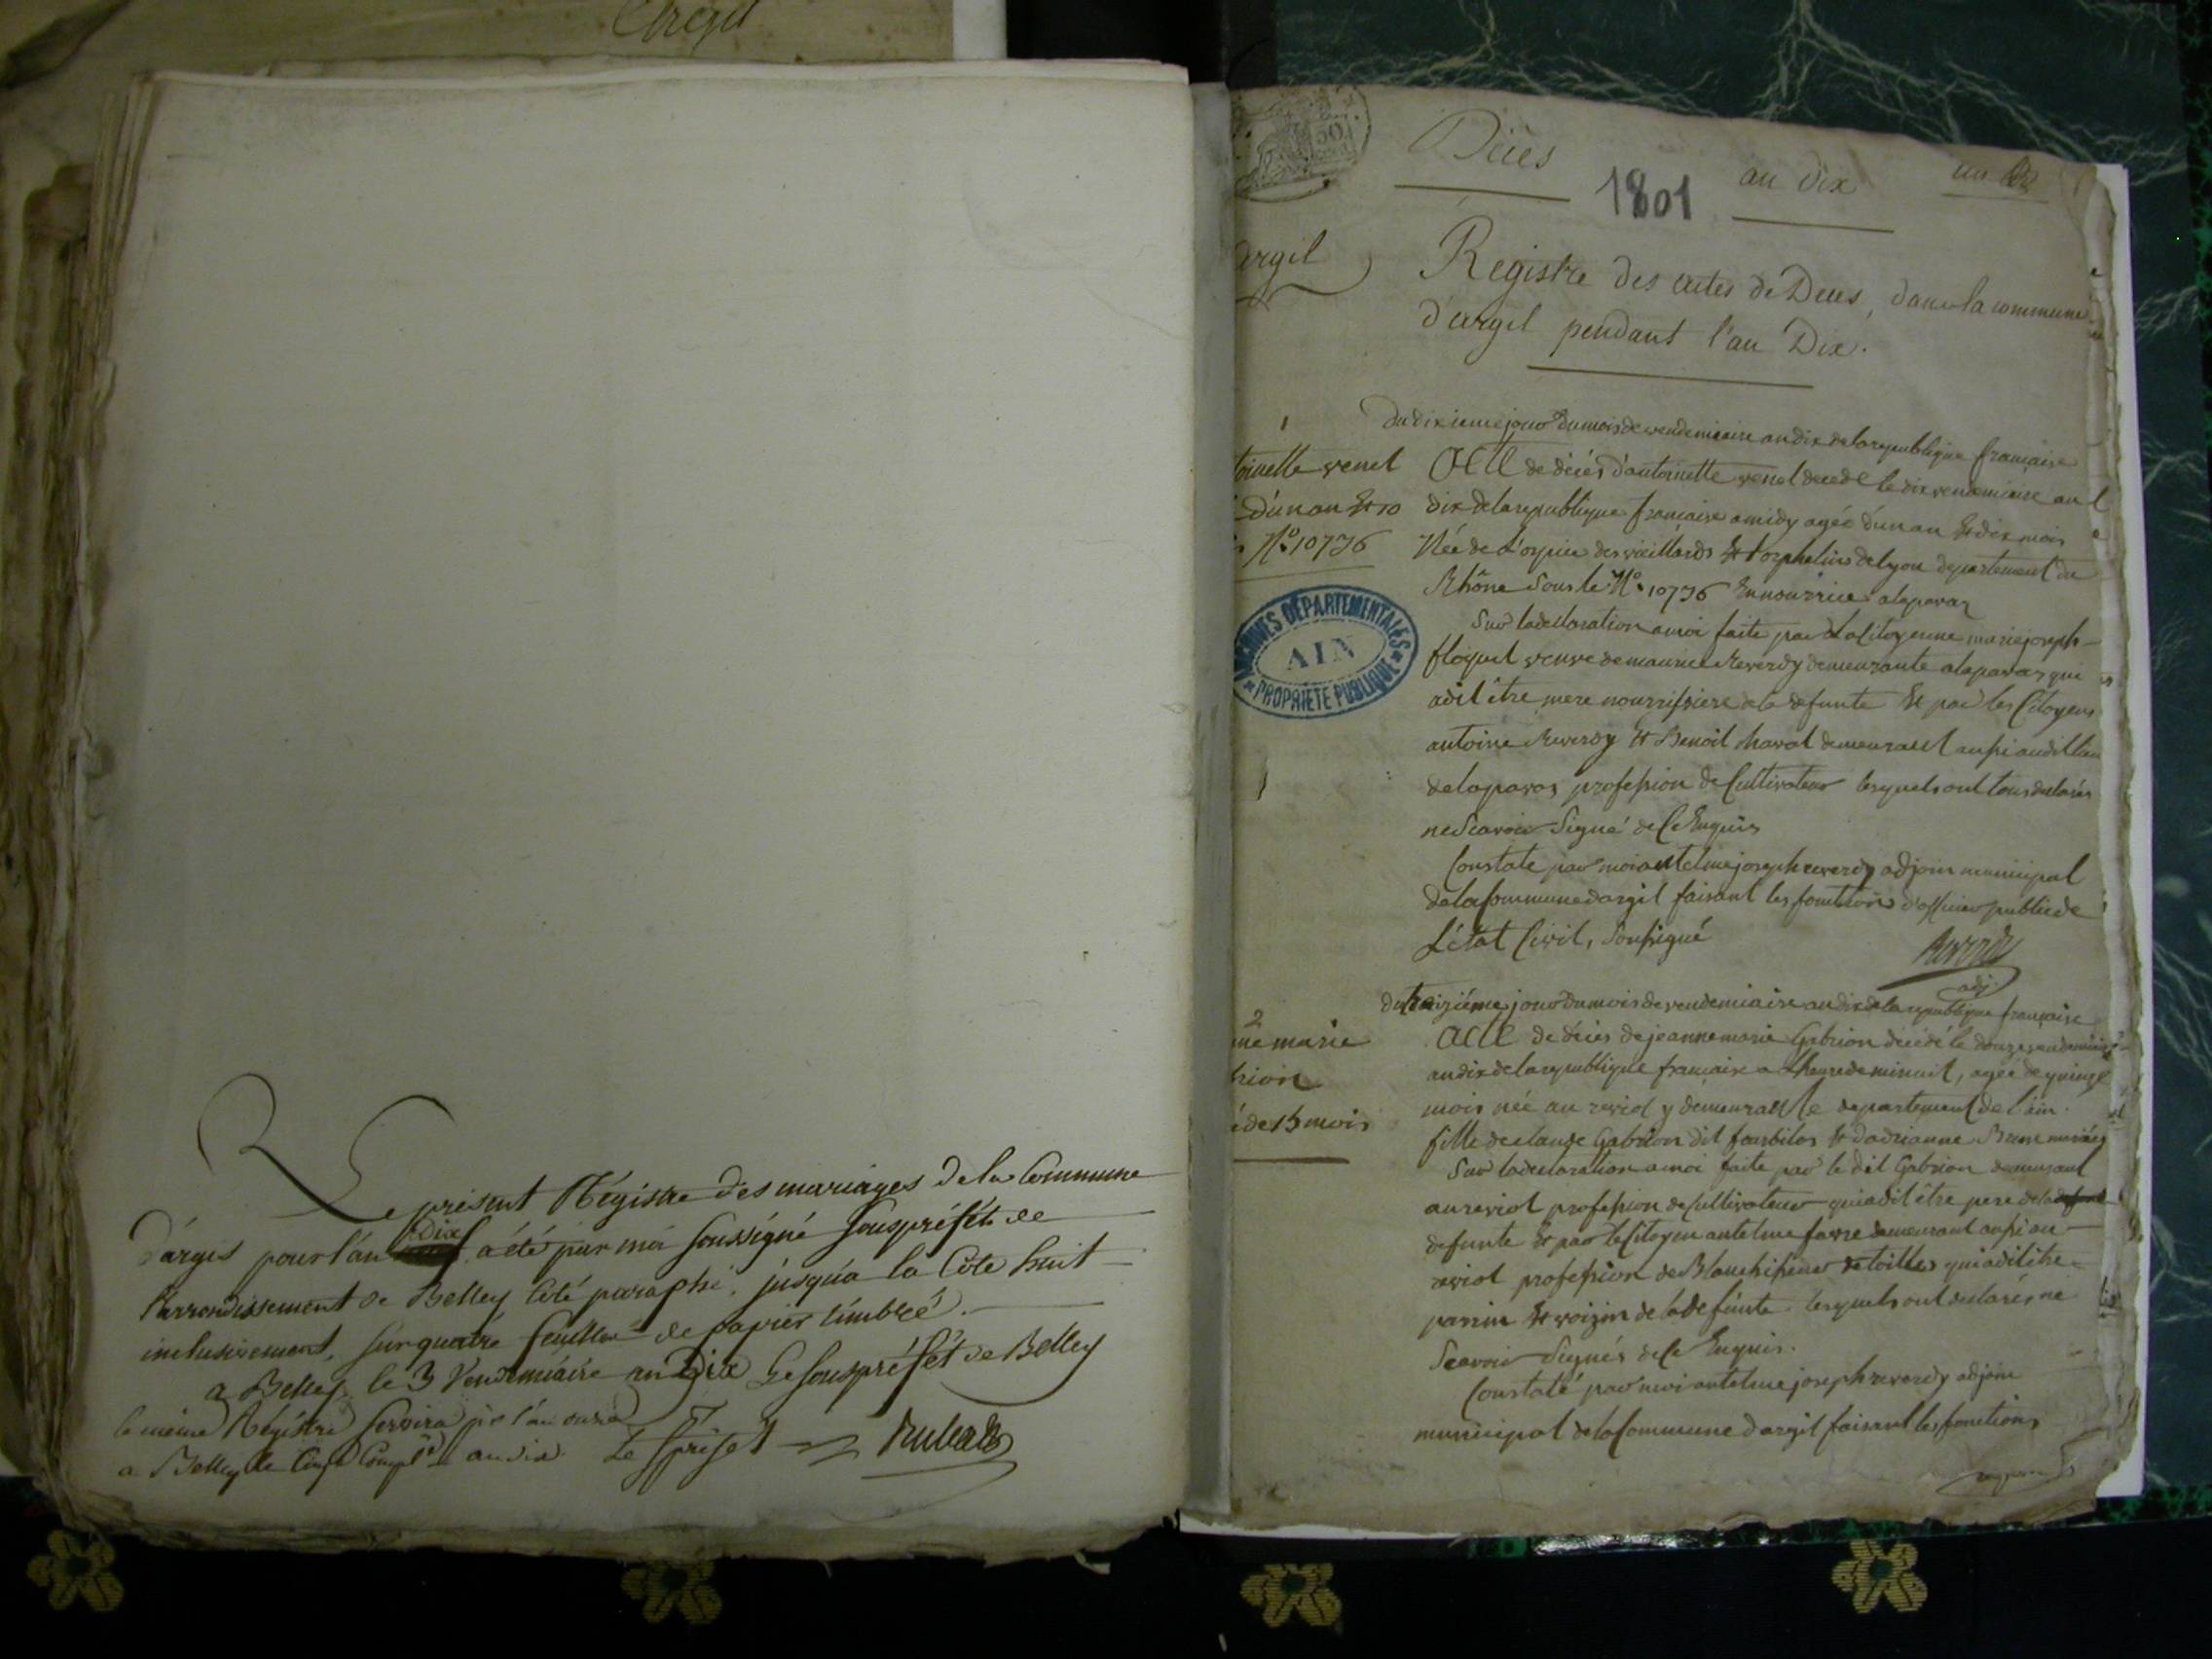 argil
Le présent Régistre des mariages de la Commune
d'argis pour l'an Dix a été par moi soussigné souspréfét de
l'arrondissement de Belley coté paraphé, jusqu'a la Cote huit
inclusivement, sur quatre feuilles de papier timbré.
a Belley le 3 Vendémiaire an Dix Le souspréfét de Belley
le même Régistre servira pr l'an onze
a Belley le an dix. Le sspréfet
50
Décès an dix un
1801
argil
Registre des actes de Decès, dans la commune
d'argil pendant l'an Dix.
1
toinette venet
d'un an et 10
No 10736
Du dixieme jour du mois de vendemiaire an dix de la republique française
Acte de décès d'antoinette venet decedé le dix vendemiaire an
dix de la republique française a midy agée d'un an et dix mois
Née de L'ospice des vieillards et orphelins de lyon departement du
Rhône sous le No 10736 En nourrice a laparas
Sur la declaration a moi faite par la Citoyenne marie joseph
floquet veuve de maurice Reverdy demeurante a laparas qui
a dit être mere nourrissiere de la defunte et par les Citoyens
antoine Reverdy et Benoit chavot demeurant aussi audit lieu
de laparas profession de Cultivateur lesquels ont tous declarés
ne Scavoir Signé de Ce Enquis
Constate par moi antelme joseph reverdy adjoin municipal
de la Commune dargil faisant les fonction d'officier public de
L'état Civil, Soussigné
Reverdy
adj.
ARCHIVES DÉPARTEMENTALES
AIN
PROPRIÉTÉ PUBLIQUE
2
ne marie
brion
é de 15 mois
du treizième jour du mois de vendemiaire an dix de la republique française
Acte de décès de jeanne marie Gabrion décédé le douze vendemiaire
an dix de la republique française a l'heure de minuit, agée de quinze
mois née au reviol y demeurant le departement de l'ain.
fille de claude Gabrion dit et dadrianne Brun mariés
Sur la declaration a moi faite par le dit Gabrion demeurant
au reviol profession de Cultivateur qui a dit être pere de la
defunte et par le Citoyen antelme favre demeurant aussi au
reviol profession de Blanchisseur de toilles qui a dit être
parrin et voizin de la defunte. lesquels ont declarés ne
Scavoir Signés de Ce Enquis.
Constaté par moi antelme joseph reverdy adjoin
municipal de la Commune dargil faisant les fonctions